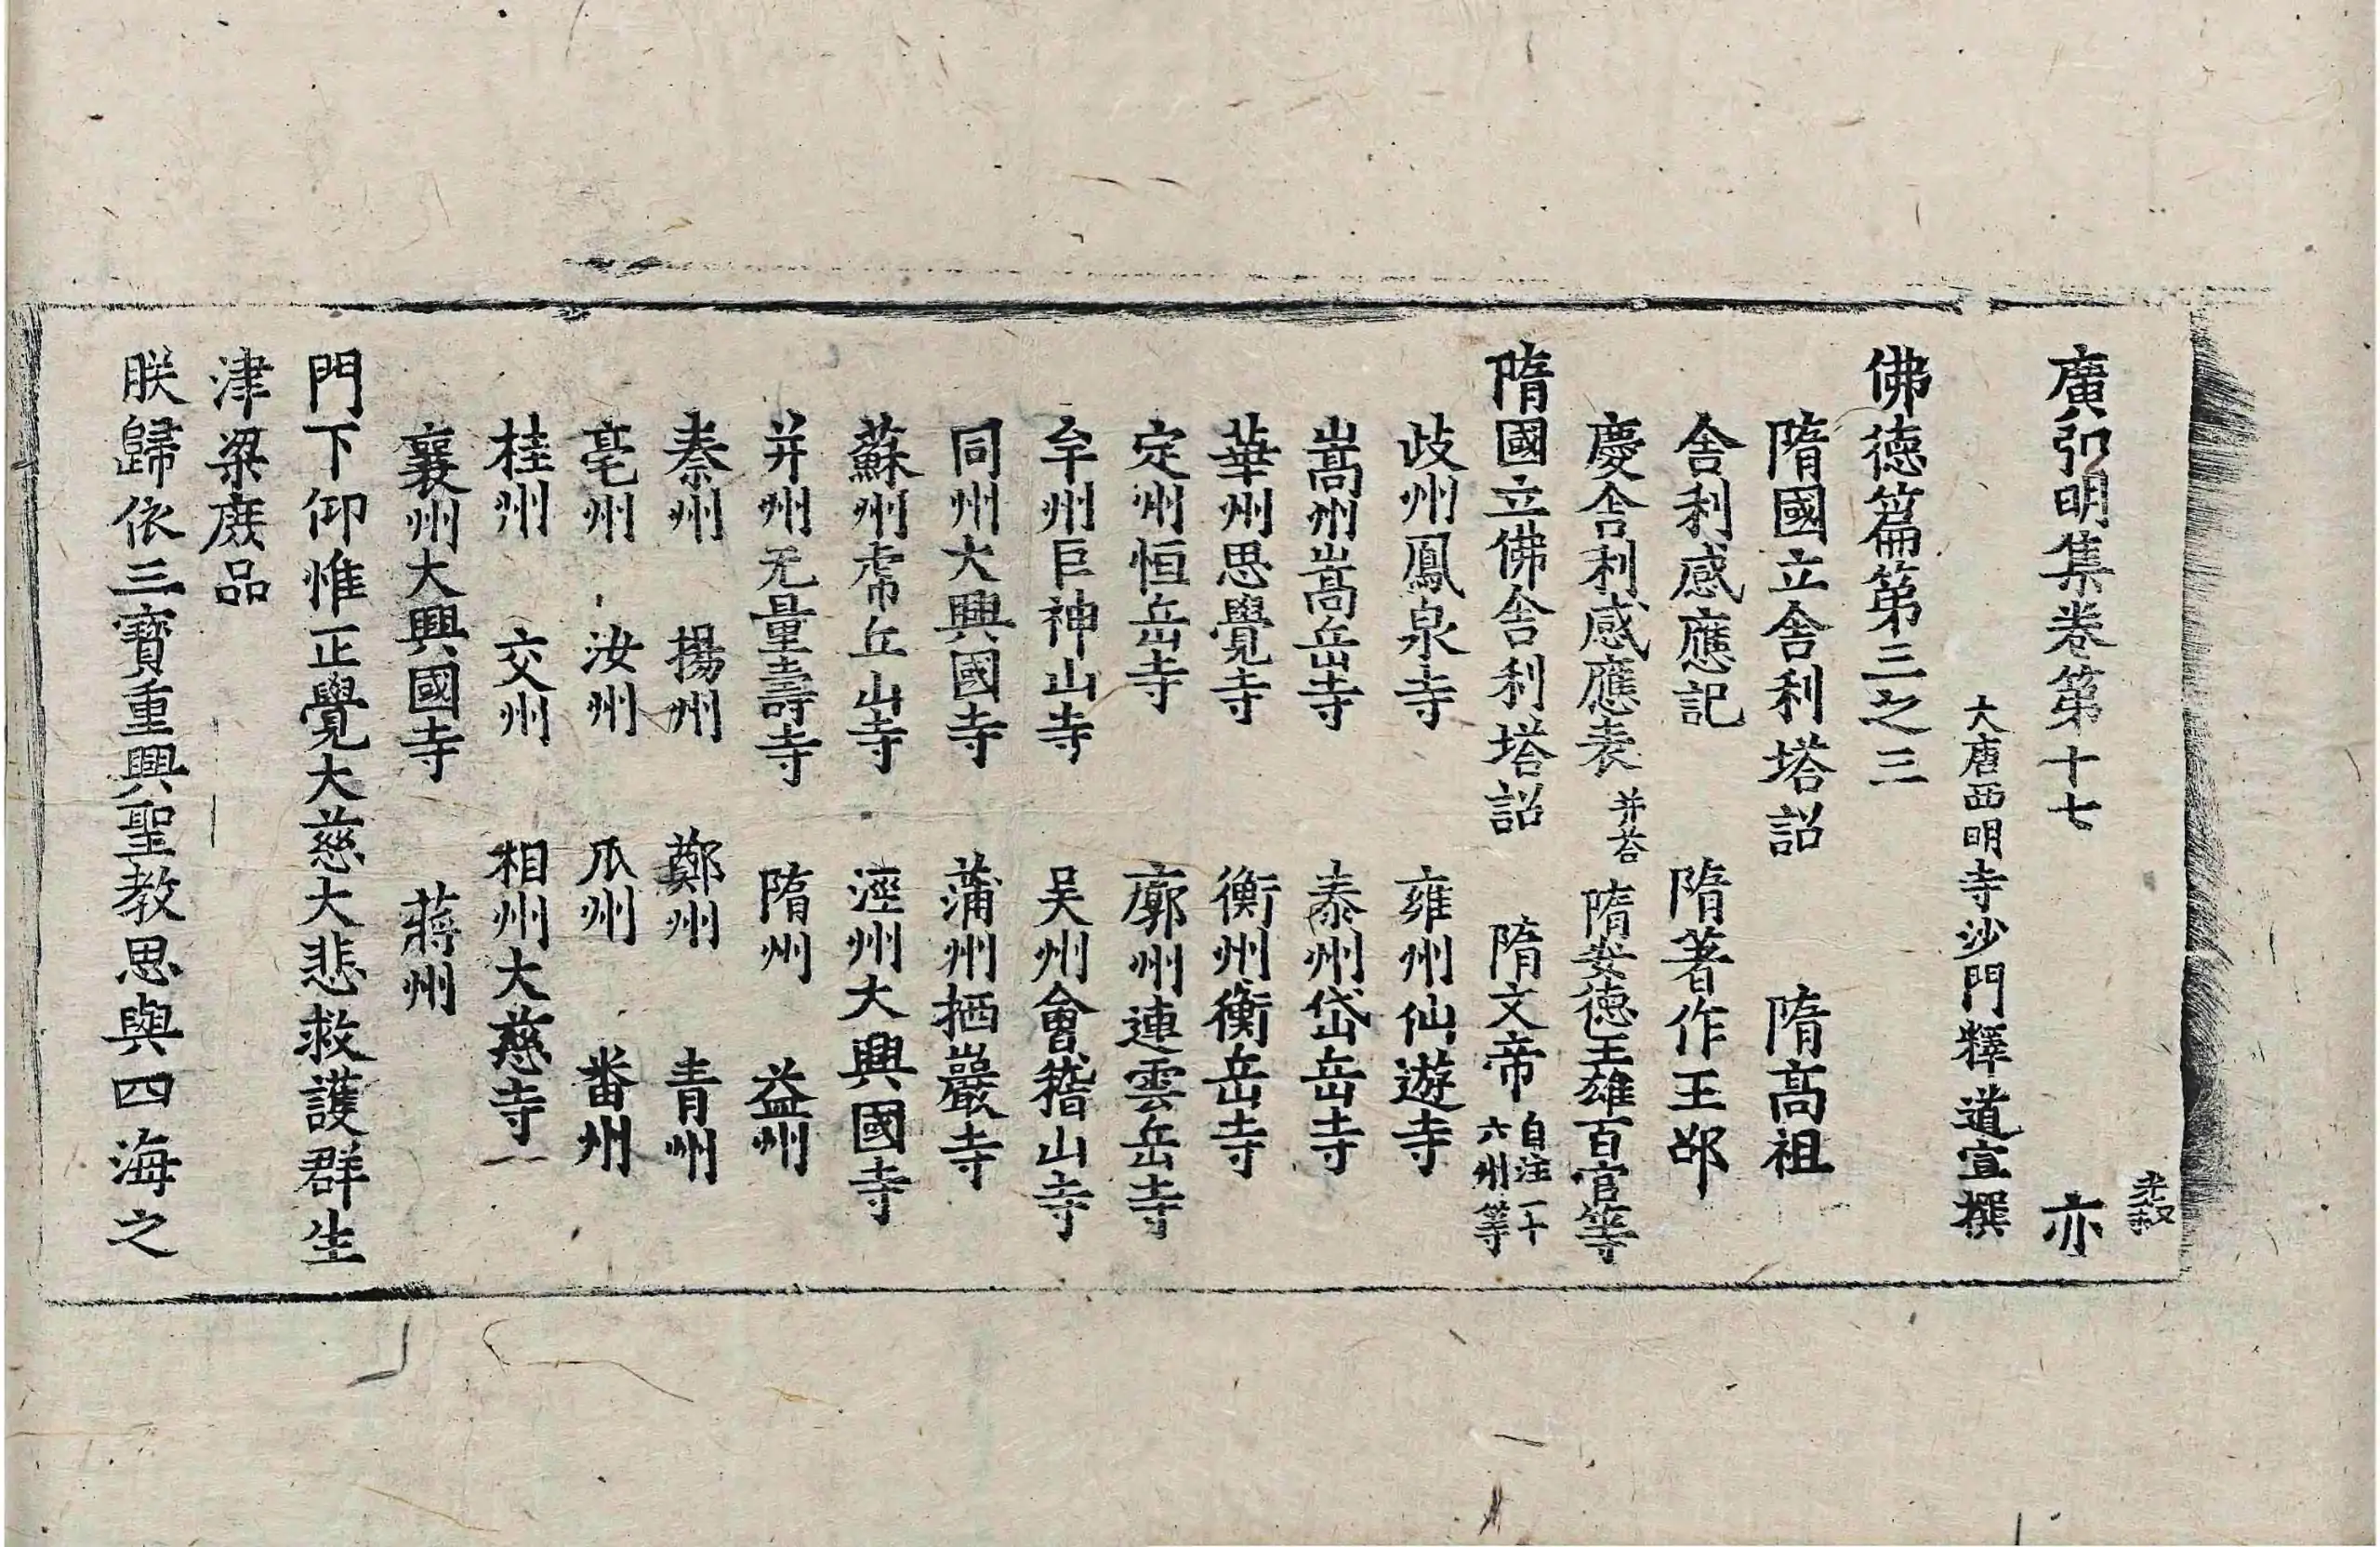 廣弘明集卷第十七 亦
大唐西明寺沙門釋道宣撰
佛德篇第三之三
隋國立舍利塔詔 隋高祖
舍利感應記 隋著作王邵
慶舍利感應表并荅 隋安德王雄百官等
隋國立佛舍利塔詔 隋文帝自注一十六州等
歧州鳳泉寺 雍州仙遊寺
嵩州嵩岳寺 泰州岱岳寺
華州思覺寺 衡州衡岳寺
定州恒岳寺 廓州連雲岳寺
牟州巨神山寺 吴州會稽山寺
同州大興國寺 蒲州栖巖寺
蘇州虎丘山寺 涇州大興國寺
并州无量壽寺 隋州 益州
秦州 揚州 鄭州 青州
亳州 汝州 瓜州 番州
桂州 交州 相州大慈寺
襄州大興國寺 蔣州
門下仰惟正覺大慈大悲救護群生
津梁庶品
朕歸依三寶重興聖教思與四海之